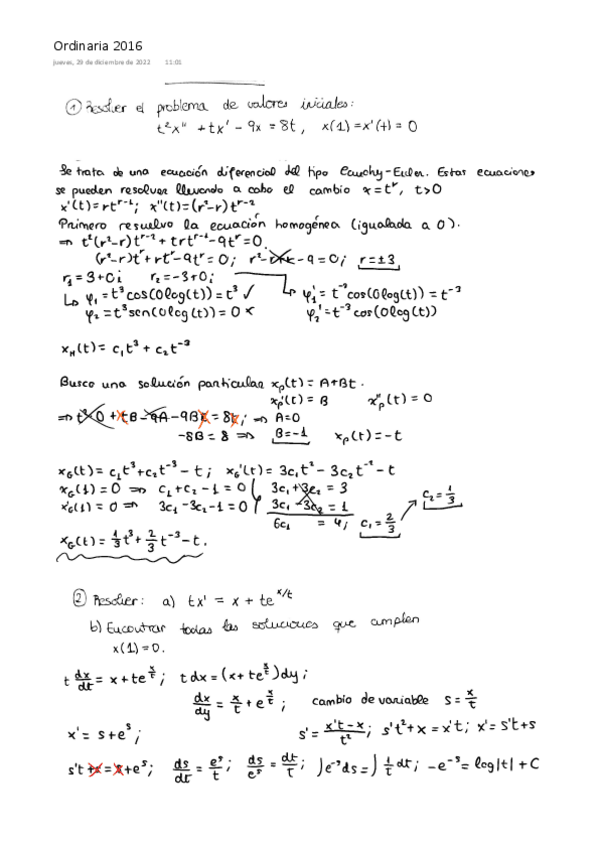 Ordinaria 2016
jueves, 29 de diciembre de 2022 11:01
① Resolver el problema de valores iniciales:
t²x" + tx' - 9x = 8t, x(1) = x'(1) = 0
Se trata de una ecuación diferencial del tipo Cauchy-Euler. Estas ecuaciones
se pueden resolver llevando a cabo el cambio x = t^r, t>0
x'(t) = rt^{r-1}; x"(t) = (r²-r)t^{r-2}
Primero resuelvo la ecuación homogénea (igualada a 0).
⇒ t²(r²-r)t^{r-2} + trt^{r-1} - 9t^r = 0
(r²-r)t^r + rt^r - 9t^r = 0; r² - r + r - 9 = 0; r = ±3
r₁ = 3+0i r₂ = -3+0i
↳ φ₁ = t³cos(0log(t)) = t³ ✓ ↳ φ₁' = t⁻³cos(0log(t)) = t⁻³
φ₂ = t³sen(0log(t)) = 0 × φ₂' = t⁻³cos(0log(t))
x_H(t) = c₁t³ + c₂t⁻³
Busco una solución particular x_p(t) = A+Bt.
x_p'(t) = B x_p"(t) = 0
⇒ t²·0 + tB - 9A - 9Bt = 8t; ⇒ A=0
-8B = 8 ⇒ B=-1 x_p(t) = -t
x_G(t) = c₁t³ + c₂t⁻³ - t; x_G'(t) = 3c₁t² - 3c₂t⁻² - t
x_G(1) = 0 ⇒ c₁+c₂-1 = 0 3c₁+3c₂ = 3
x_G'(1) = 0 ⇒ 3c₁-3c₂-1 = 0 3c₁-3c₂ = 1
6c₁ = 4; c₁ = 2/3 c₂ = 1/3
x_G(t) = 1/3 t³ + 2/3 t⁻³ - t.
② Resolver: a) tx' = x + te^{x/t}
b) Encontrar todas las soluciones que cumplen
x(1) = 0.
t dx/dt = x + te^{x/t}; t dx = (x + te^{x/t})dy;
dx/dy = x/t + e^{x/t}; cambio de variable s = x/t
x' = s + e^s; s' = (x't - x)/t²; s't² + x = x't; x' = s't + s
s't + s = s + e^s; ds/dt = e^s/t; ds/e^s = dt/t; ∫e^{-s}ds = ∫1/t dt; -e^{-s} = log|t| + C